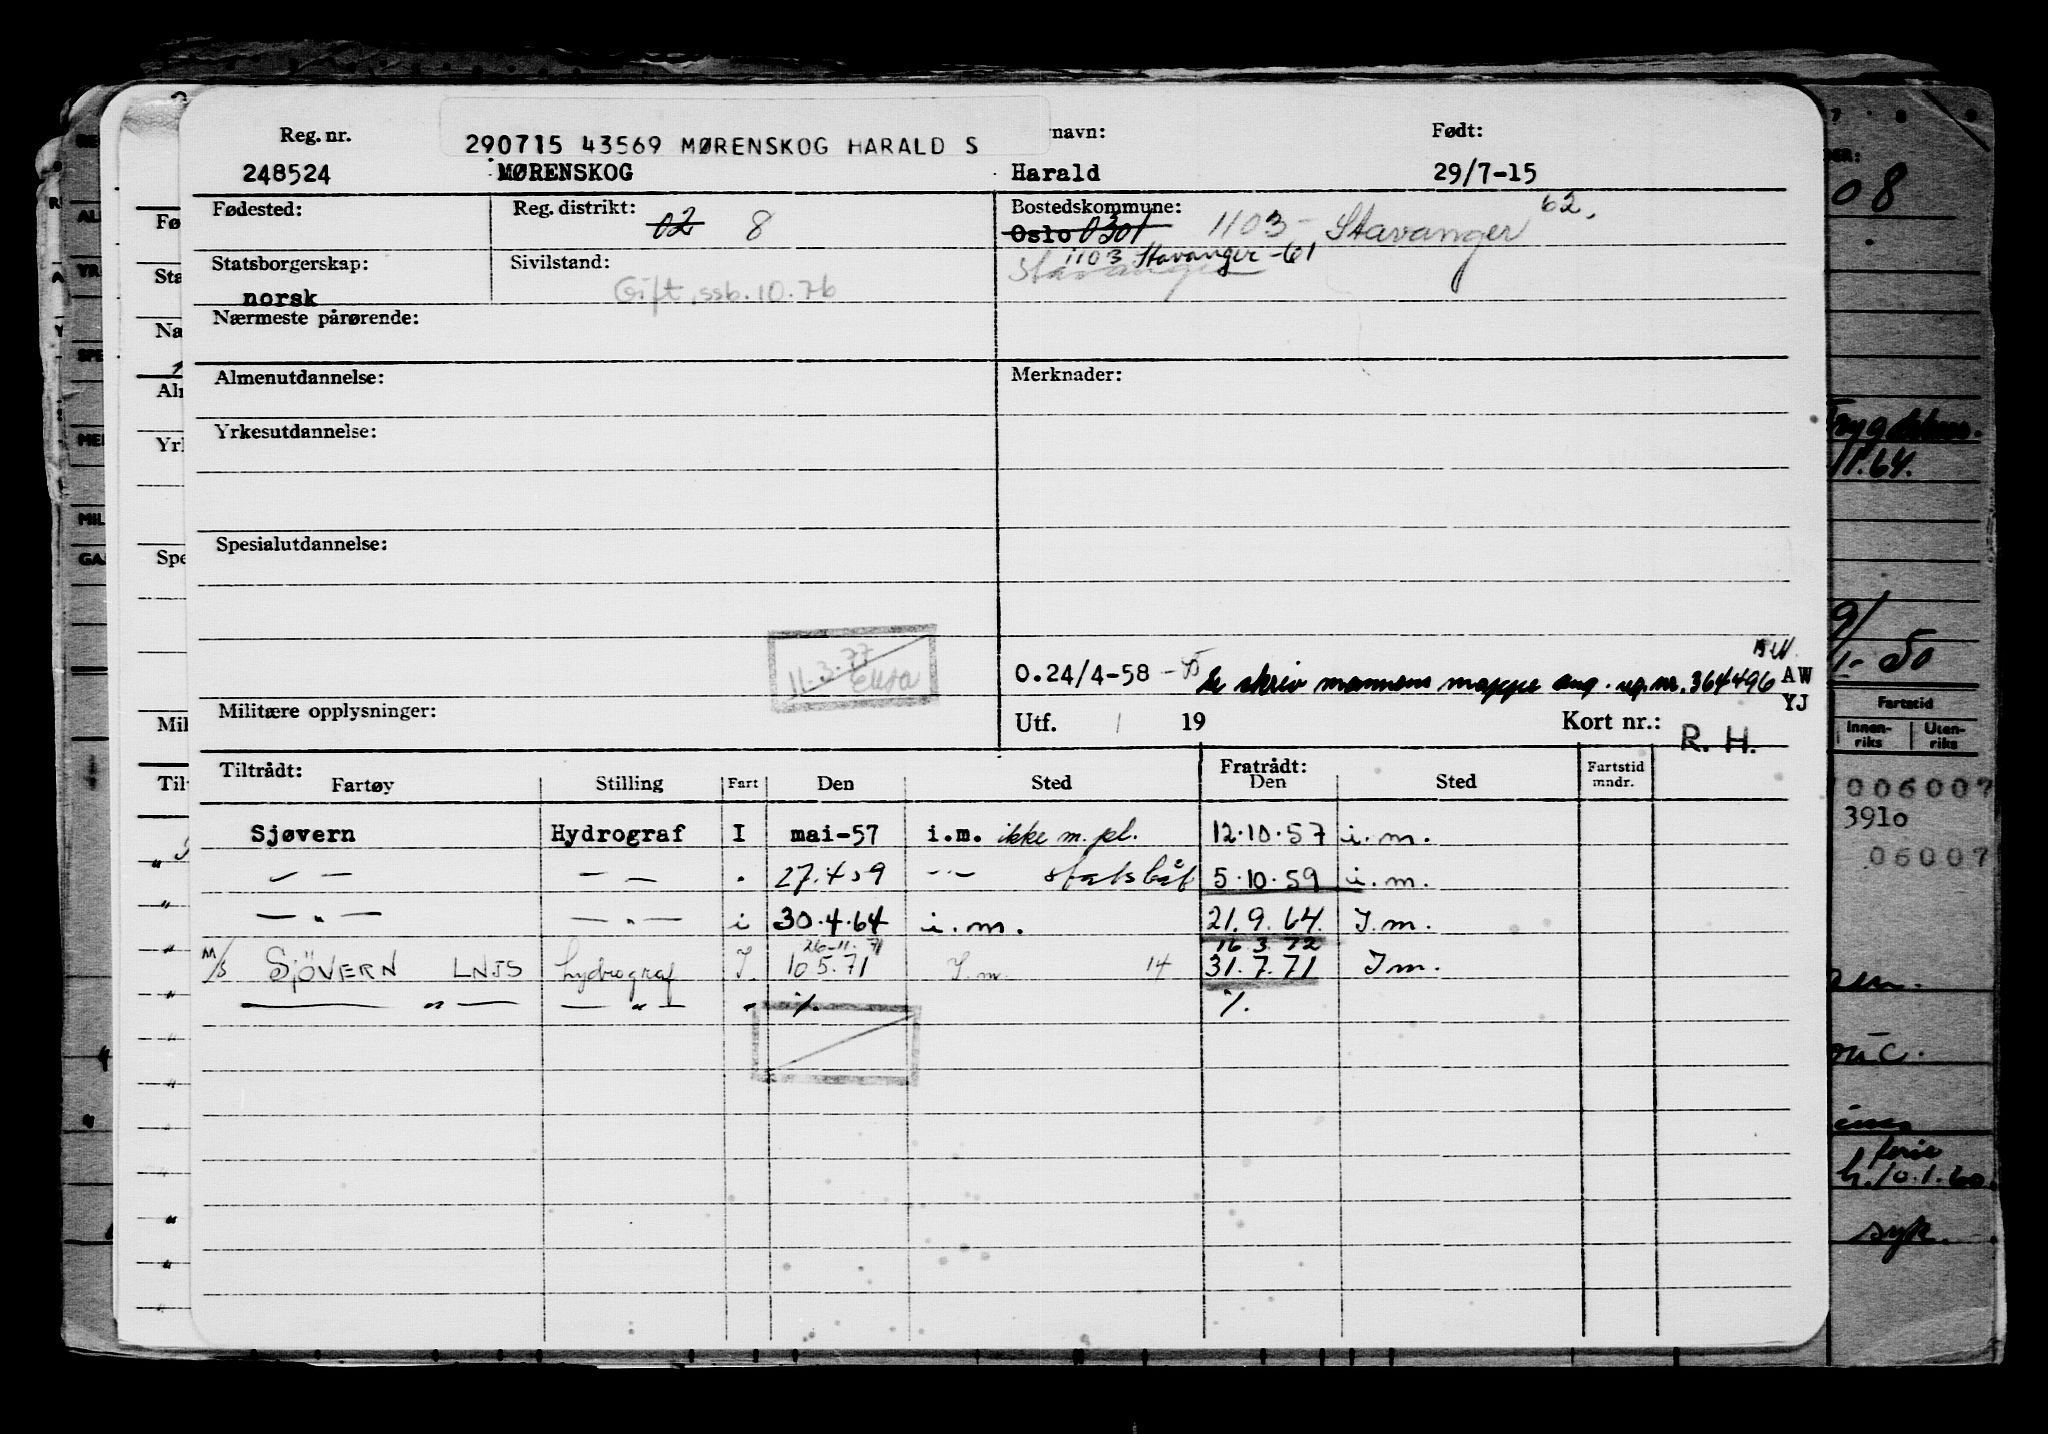 Reg. nr.
290715 43569 MØRENSKOG HARALD S
navn:
Født:
248524
MØRENSKOG
Harald
29/7-15
Fødested:
Reg. distrikt:
02 8
Bostedskommune:
Oslo 0301 1103 - Stavanger 62.
Stavanger 1103 Stavanger -61
Statsborgerskap:
norsk
Sivilstand:
Gift, ssb. 10.76
Nærmeste pårørende:
Almenutdannelse:
Merknader:
Yrkesutdannelse:
Spesialutdannelse:
11.3.77
0.24/4-58
Se skriv mannens mappe ang. reg.nr. 364496
AW
YJ
Militære opplysninger:
Utf. 19
Kort nr.:
R. H.
Tiltrådt:
Fratrådt:
Fartøy Stilling Fart Den Sted Den Sted Fartstid mndr.
Sjøvern Hydrograf I mai-57 i.m. ikke m. pl. 12.10.57 i.m.
— — — — 27.4 59 -"- statsbåt 5.10.59 i.m.
— " — — " — i 30.4.64 i.m. 21.9.64. I.m.
26-11.71 16.3.72
M/S SJÖVERN LNJS Hydrograf I. 10 5.71 I.m. 14 31.7.71 I m.
— " — — " — " %. %.
08
1.64.
50
Fartstid
Innen-
riks
Uten-
riks
006007
3910
06007
ferie
10.1.60.
syk.